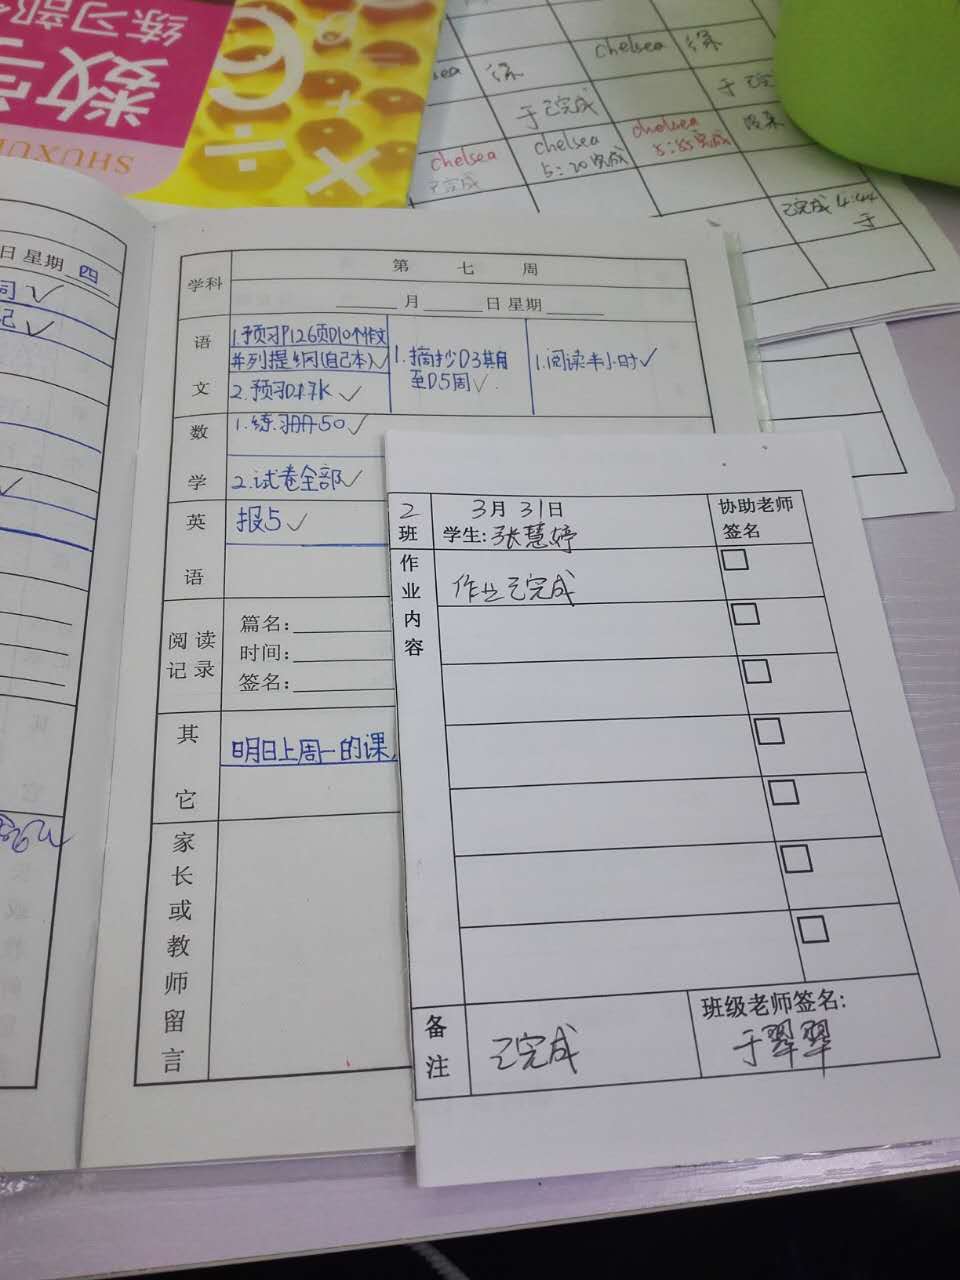 数学
练习部分
SHUXUE
chelsea
徐
于已完成
chelsea
已完成
chelsea
5:20完成
chelsea
5:55完成
已完成 4:44
于
日 星期 四
学科
第 七 周
月 日 星期
语文
1.预习P126页D10个作文
并列提纲(自己本)✓
2.预习D17K ✓
1.摘抄D3其月
至D5周✓
1.阅读半小时✓
数学
1.练习册50✓
2.试卷全部✓
英语
报5✓
阅读记录
篇名:
时间:
签名:
其它
明日上周一的课
家长或教师留言
2班
3月31日
学生:张慧婷
协助老师签名
作业内容
作业已完成
备注
已完成
班级老师签名:
于翠翠